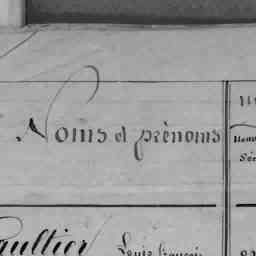 Noms et prénoms
Gaultier Louis François